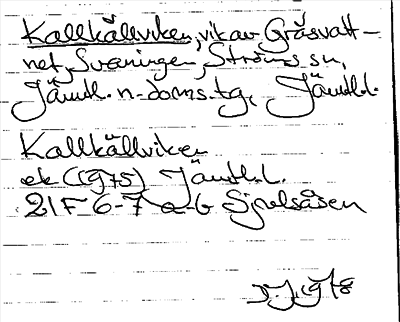 Kallkällviken, vik av Gråsvatt-
net, Svaningen, Ströms sn,
Jämtl. n. doms. tg, Jämtl. l.
Kallkällviken
ek (1975) Jämtl. l.
21F 6-7 a-b Sjoelsåsen
1978